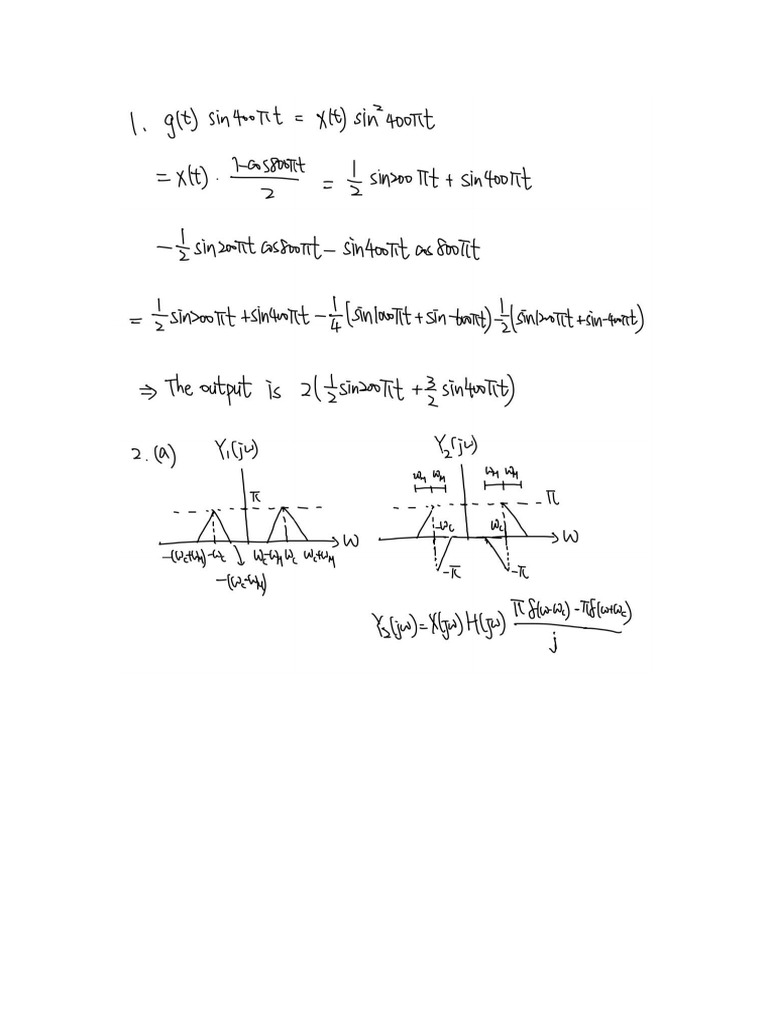 1. g(t) sin400πt = x(t) sin²400πt
= x(t) · (1-cos800πt)/2 = 1/2 sin200πt + sin400πt
- 1/2 sin200πt cos800πt - sin400πt cos800πt
= 1/2 sin200πt + sin400πt - 1/4 (sin1000πt + sin-600πt) - 1/2 (sin1200πt + sin-400πt)
⇒ The output is 2(1/2 sin200πt + 3/2 sin400πt)
2. (a) Y₁(jω) Y₂(jω)
ω_M ω_M ω_M ω_M
π π
-ω_c ω_c
ω ω
-(ω_c+ω_M) -ω_c ω_c-ω_M ω_c ω_c+ω_M
-(ω_c-ω_M)
-π -π
Y₂(jω) = X(jω) H(jω) (πδ(ω-ω_c) - πδ(ω+ω_c))/j